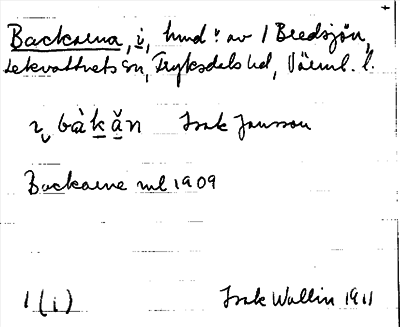 Backarna, i, hmd: av / Bredsjön,
Lekvattnets sn, Fryksdals hd, Värml. l.
ɩ bàkǎn Isak Jansson
Backarne ml 1909
1 (i) Isak Wallin 1911